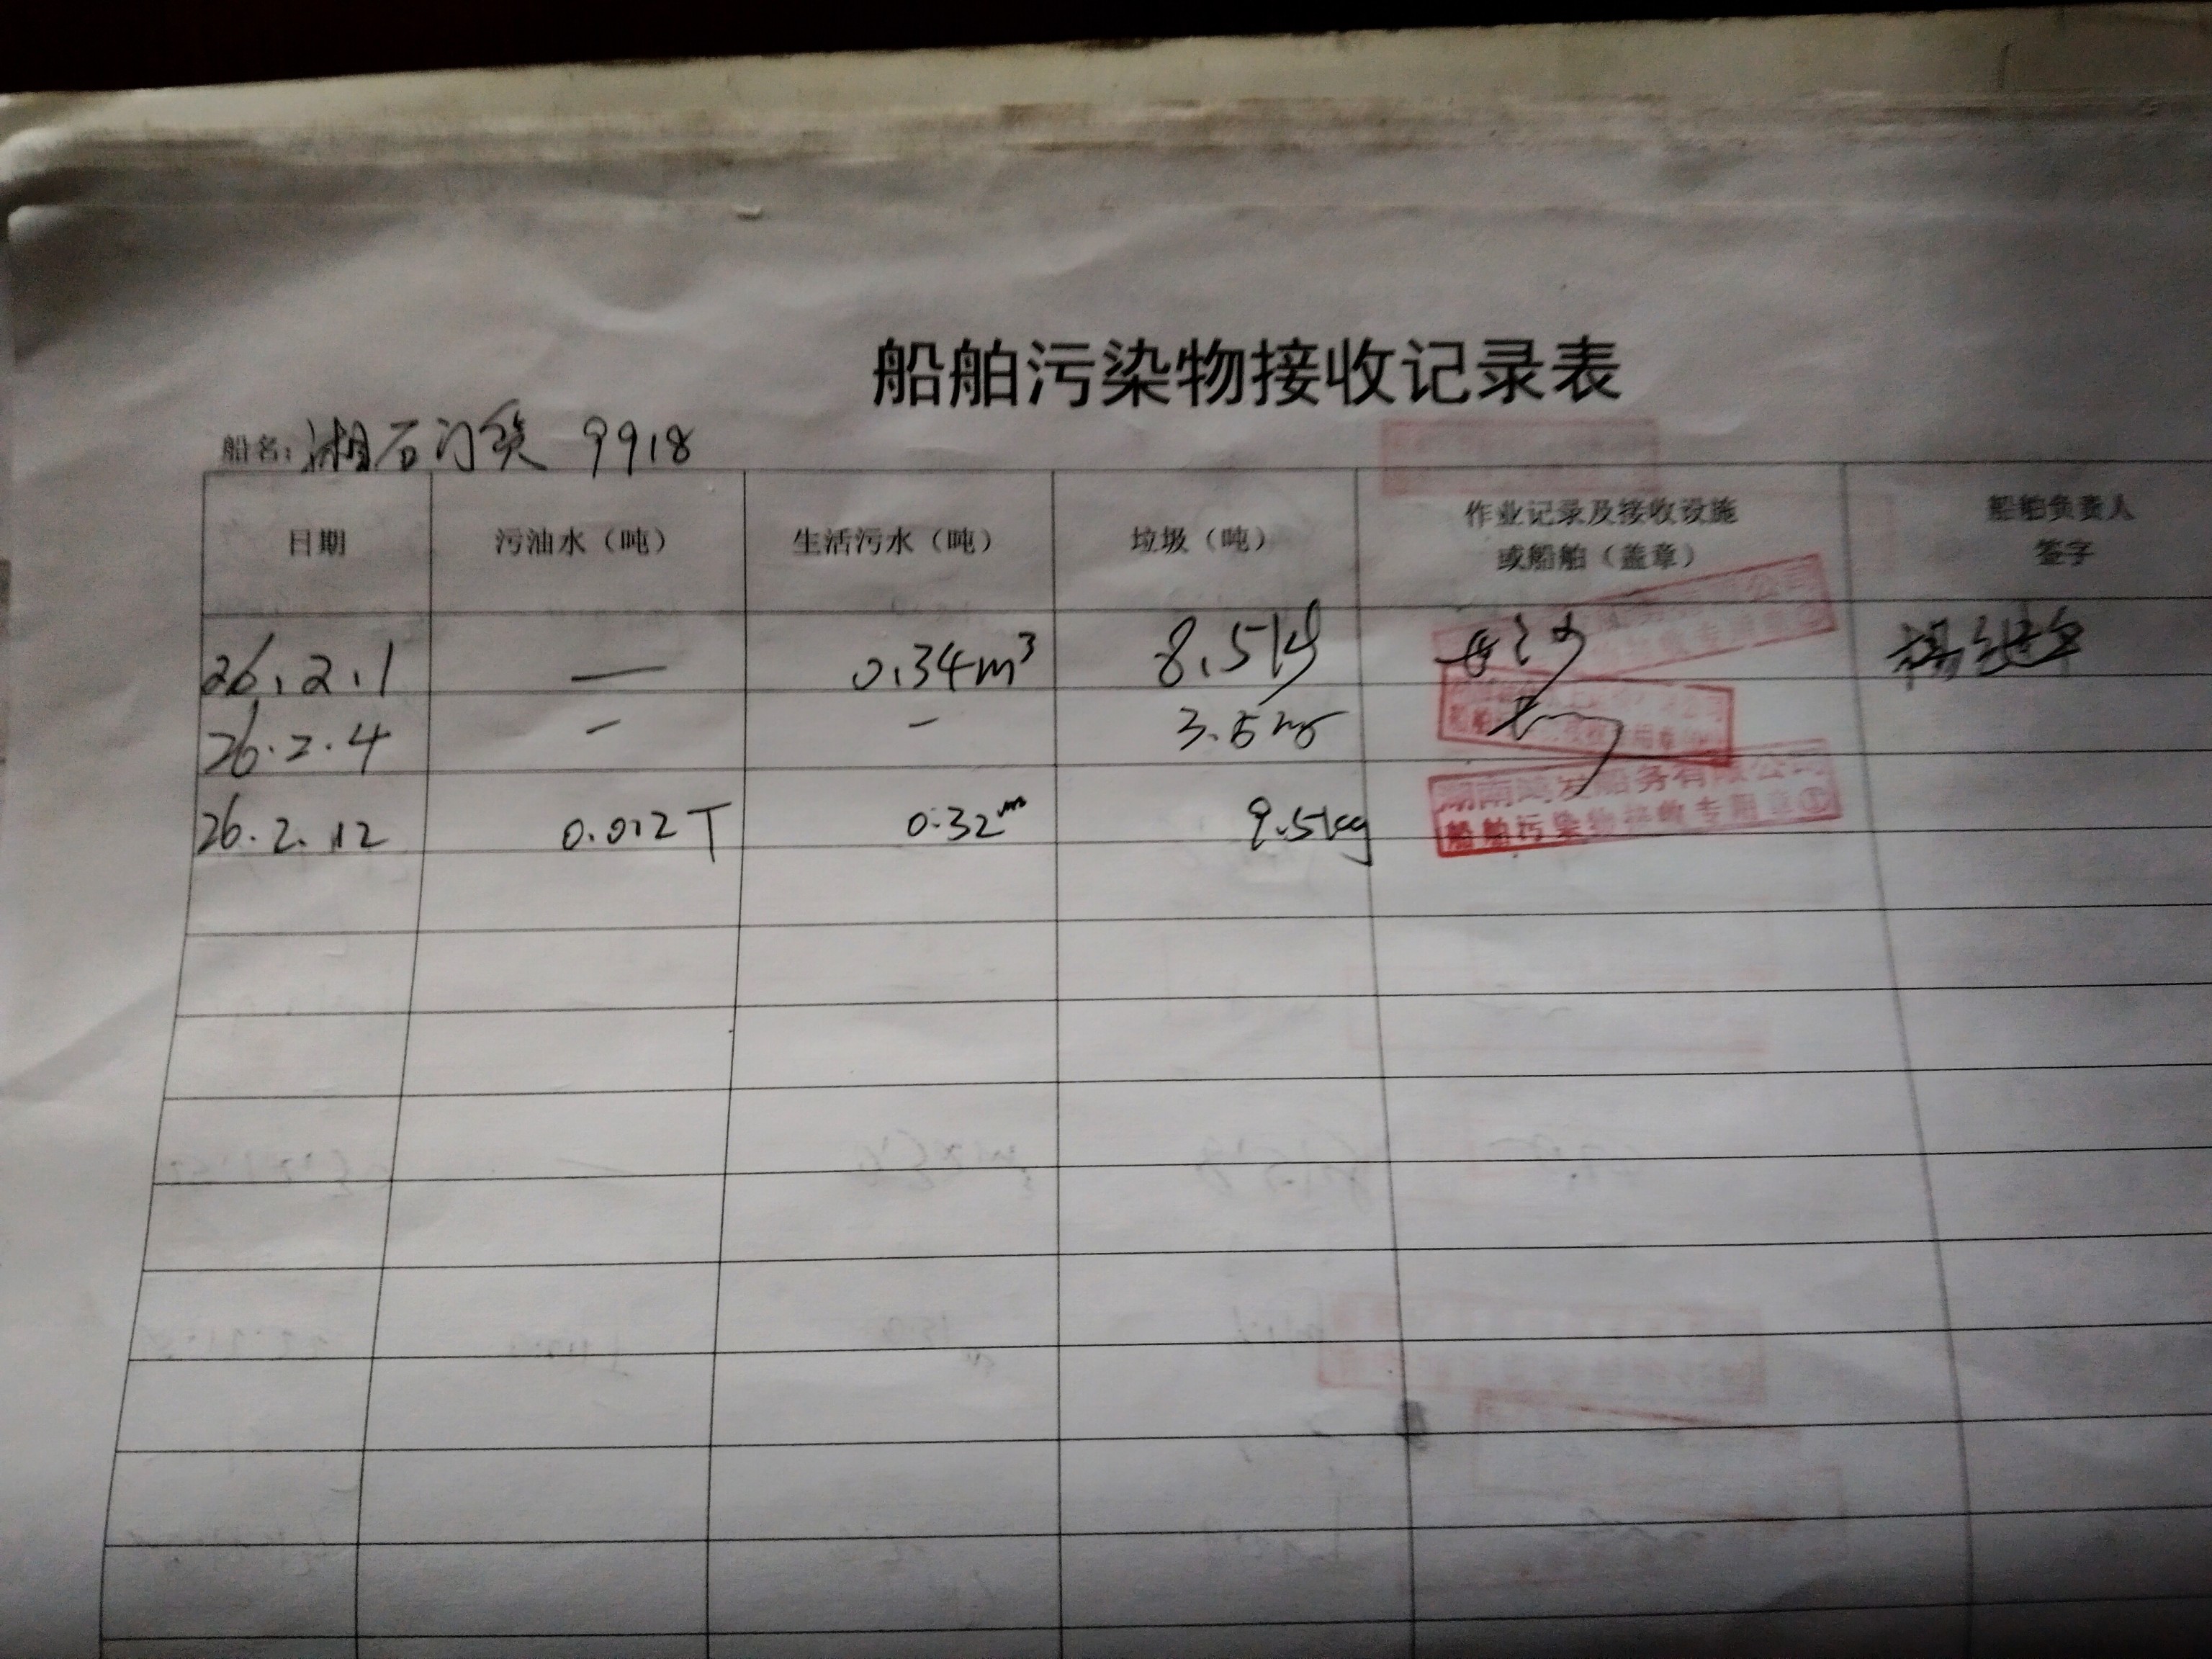 船舶污染物接收记录表
船名: 湘石门货 9918
日期 污油水（吨） 生活污水（吨） 垃圾（吨） 作业记录及接收设施或船舶（盖章） 船舶负责人签字
26.2.1 — 0.34m³ 8.5kg
26.2.4 — — 3.5kg
26.2.12 0.012T 0.32m 9.5kg
湖南鸿发船务有限公司
船舶污染物接收专用章①